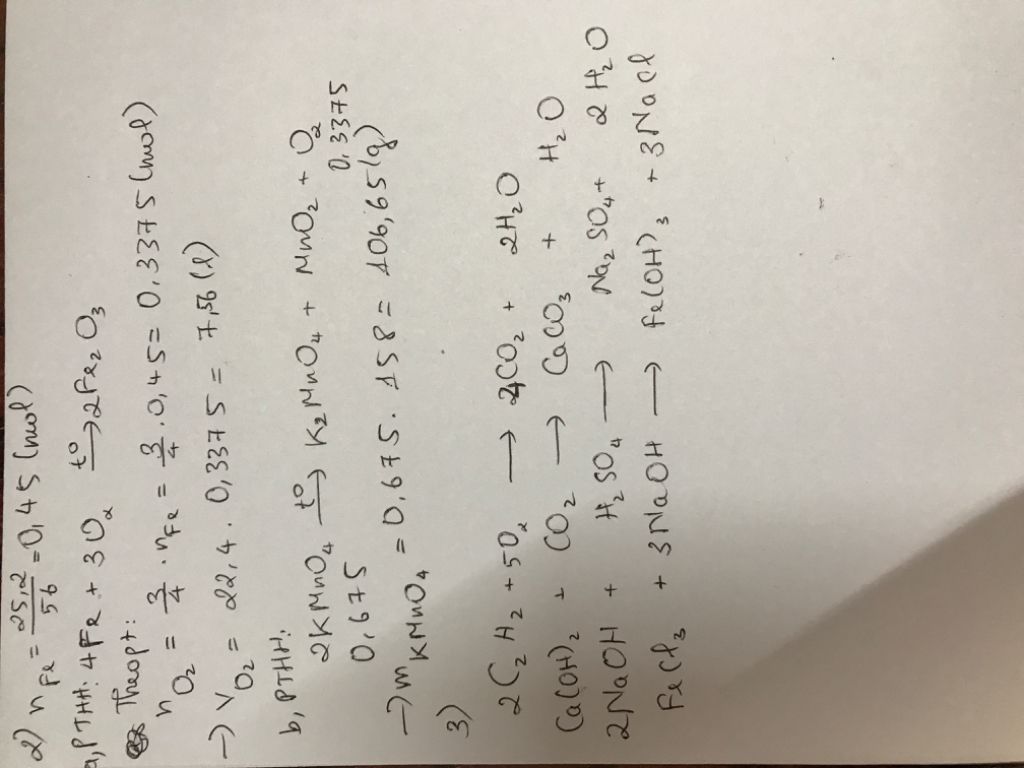 2) nFe = 25,2/56 = 0,45 (mol)
a, PTHH: 4Fe + 3O₂ t°→ 2Fe₂O₃
Theo pt:
nO₂ = 3/4 . nFe = 3/4 . 0,45 = 0,3375 (mol)
→ VO₂ = 22,4 . 0,3375 = 7,56 (l)
b, PTHH:
2KMnO₄ t°→ K₂MnO₄ + MnO₂ + O₂
0,675 0,3375
→ mKMnO₄ = 0,675 . 158 = 106,65 (g)
3)
2C₂H₂ + 5O₂ → 4CO₂ + 2H₂O
Ca(OH)₂ + CO₂ → CaCO₃ + H₂O
2NaOH + H₂SO₄ → Na₂SO₄ + 2H₂O
FeCl₃ + 3NaOH → Fe(OH)₃ + 3NaCl